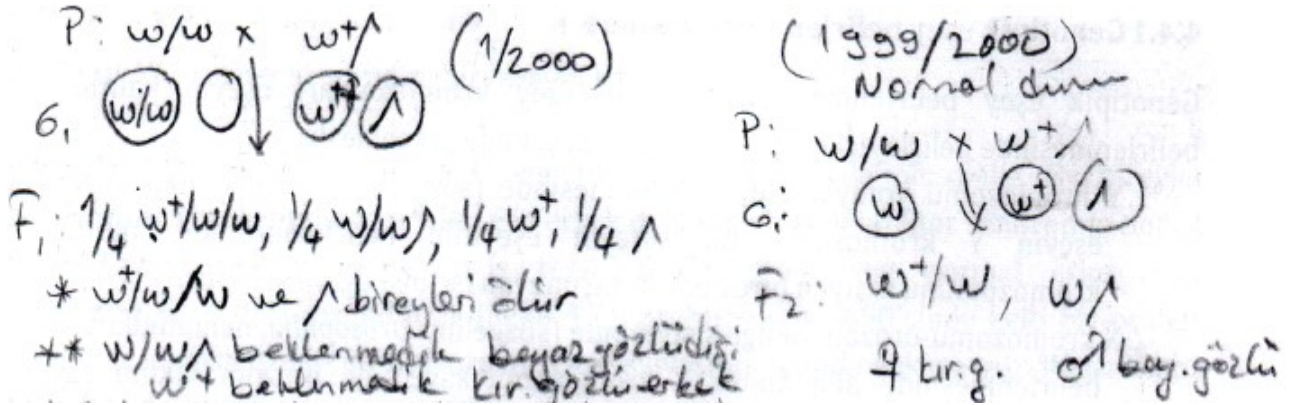 P: w/w x w+/⋀ (1/2000)
G, (w/w) ( ) (w+) (⋀)
F1: 1/4 w+/w/w, 1/4 w/w⋀, 1/4 w+, 1/4 ⋀
* w+/w/w ve ⋀ bireyleri ölür
** w/w⋀ beklenmedik beyaz gözlü dişi
w+ beklenmedik kır. gözlü erkek
(1999/2000)
Normal durum
P: w/w x w+⋀
G: (w) (w+) (⋀)
F2: w+/w, w⋀
♀ kır.g. ♂ bey.gözlü